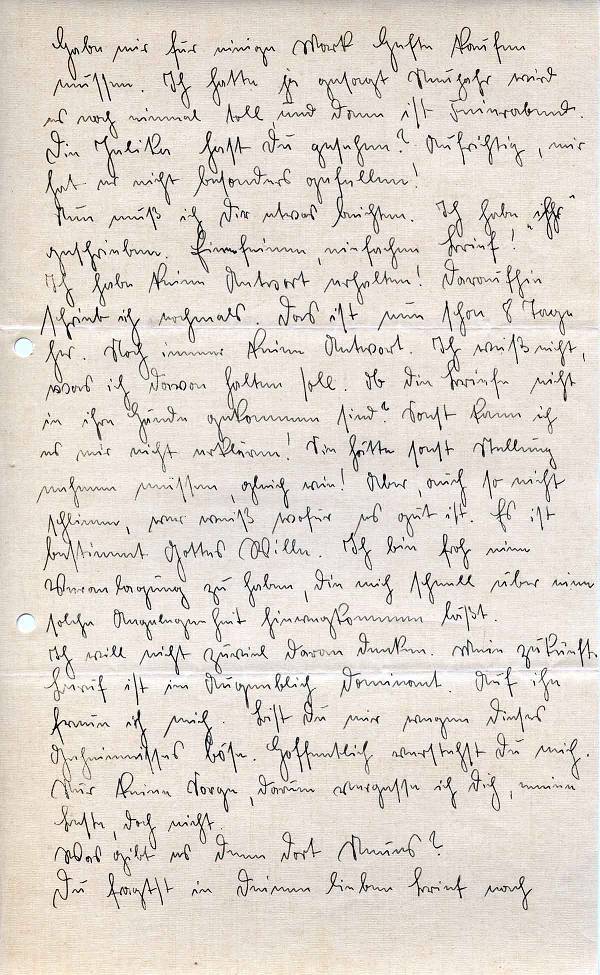 Habe mir für einige Mark Hefte kaufen
müssen. Ich hatte ja gesagt Neujahr wird
es noch einmal toll und dann ist Feierabend.
Die Julika hast Du gesehen? Aufrichtig, mir
hat es nicht besonders gefallen!
Nun muß ich Dir etwas beichten. Ich habe "ihr"
geschrieben. Einen feinen, einfachen Brief!
Ich habe keine Antwort erhalten! Daraufhin
schrieb ich nochmals. Das ist nun schon 8 Tage
her. Noch immer keine Antwort. Ich weiß nicht,
was ich davon halten soll. Ob die Briefe nicht
in ihre Hände gekommen sind? Sonst kann ich
es mir nicht erklären! Sie hätte sonst Stellung
nehmen müssen, gleich wie! Aber, auch so nicht
schlimm, wer weiß wofür es gut ist. Es ist
bestimmt Gottes Wille. Ich bin froh eine
Veranlagung zu haben, die mich schnell über eine
solche Angelegenheit hinwegkommen läßt.
Ich will nicht zuviel daran denken. Mein zukünft.
Beruf ist im Augenblick dominant. Auf ihn
freue ich mich. Bist Du mir wegen dieses
Geheimnisses böse. Hoffentlich verstehst Du mich.
Nur keine Sorge, darum vergesse ich Dich, meine
Beste, doch nicht.
Was gibt es denn dort Neues?
Du fragtst in Deinem lieben Brief nach